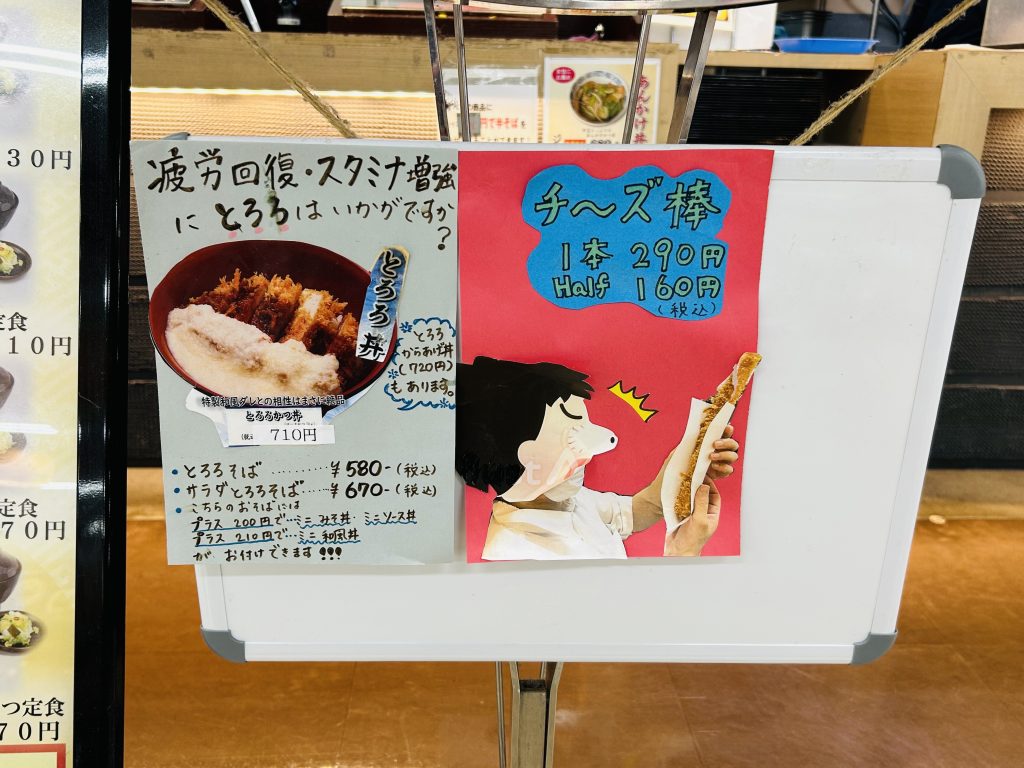 30円
定食
10円
定食
70円
つ定食
70円
あんかけ丼
疲労回復・スタミナ増強
に とろろは いかがですか
?
とろろ丼
とろろ
からあげ丼
(720円)
も あります。
特製和風ダレとの相性はまさに絶品
とろろかつ丼
710円
・とろろそば ………… ¥580-(税込)
・サラダとろろそば……¥670-(税込)
・こちらのおそばには
プラス 200円で…ミニ みそ丼 ミニソース丼
プラス 210円で…ミニ 和風丼
が お付けできます!!!
チ〜ズ棒
1本 290円
Half 160円
(税込)